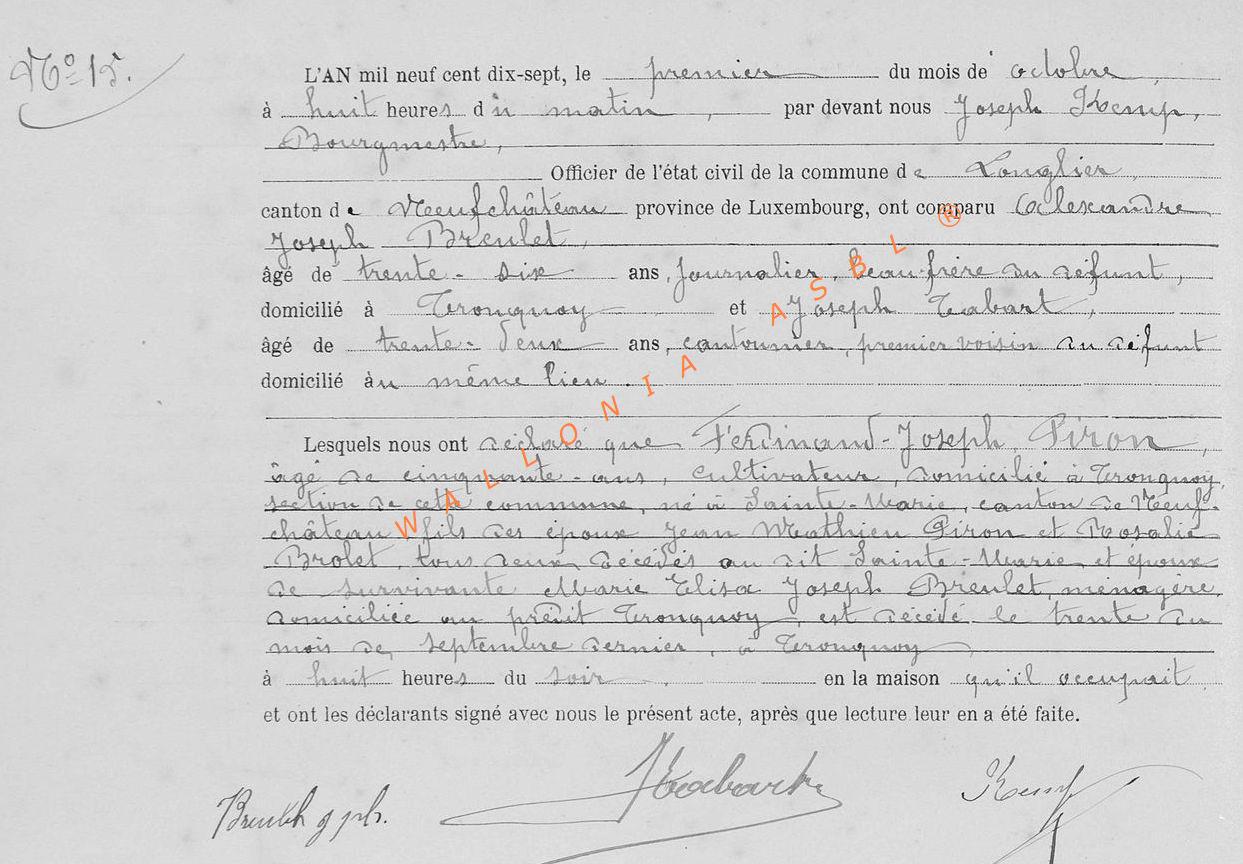 No 15.
L'AN mil neuf cent dix-sept, le premier du mois de octobre,
à huit heures du matin, par devant nous Joseph Kemp,
Bourgmestre,
Officier de l'état civil de la commune de Longlier,
canton de Neufchâteau province de Luxembourg, ont comparu Alexandre
Joseph Breulet,
âgé de trente-six ans, Journalier, beau-frère du défunt,
domicilié à Tronquoy et Joseph Tabart,
âgé de trente-deux ans, cantonnier, premier voisin du défunt
domicilié au même lieu.
Lesquels nous ont déclaré que Ferdinand-Joseph Piron,
âgé de cinquante-ans, cultivateur, domicilié à Tronquoy,
section de cette commune, né à Sainte-Marie, canton de Neuf-
château fils des époux Jean Mathieu Piron et Rosalie
Brolet, tous deux décédés au dit Sainte-Marie et époux
de survivante Marie Elisa Joseph Breulet, ménagère,
domiciliée au prédit Tronquoy, est décédé le trente du
mois de septembre dernier, à Tronquoy,
à huit heures du soir en la maison qu'il occupait
et ont les déclarants signé avec nous le présent acte, après que lecture leur en a été faite.
JTabart
Kemp
WALLONIA ASBL ®